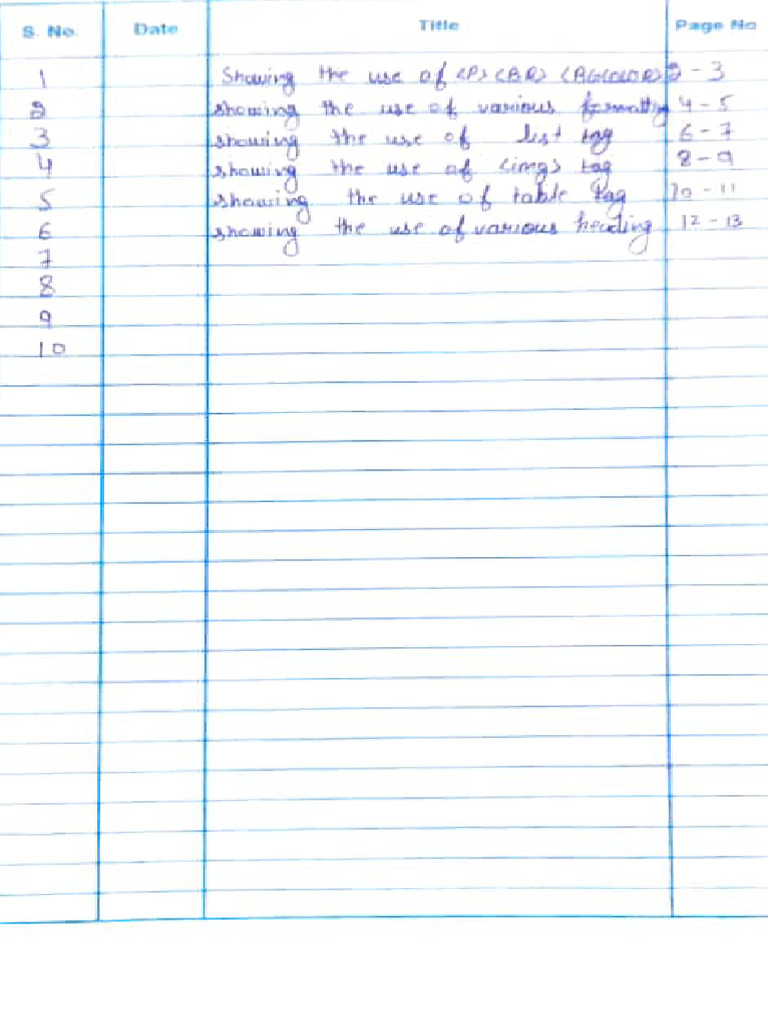 S. No. Date Title Page No
1 Showing the use of <P> <BR> <BGCOLOR> 2 - 3
2 showing the use of various formatting 4 - 5
3 showing the use of list tag 6 - 7
4 showing the use of <img> tag 8 - 9
5 showing the use of table tag 10 - 11
6 showing the use of various heading 12 - 13
7
8
9
10